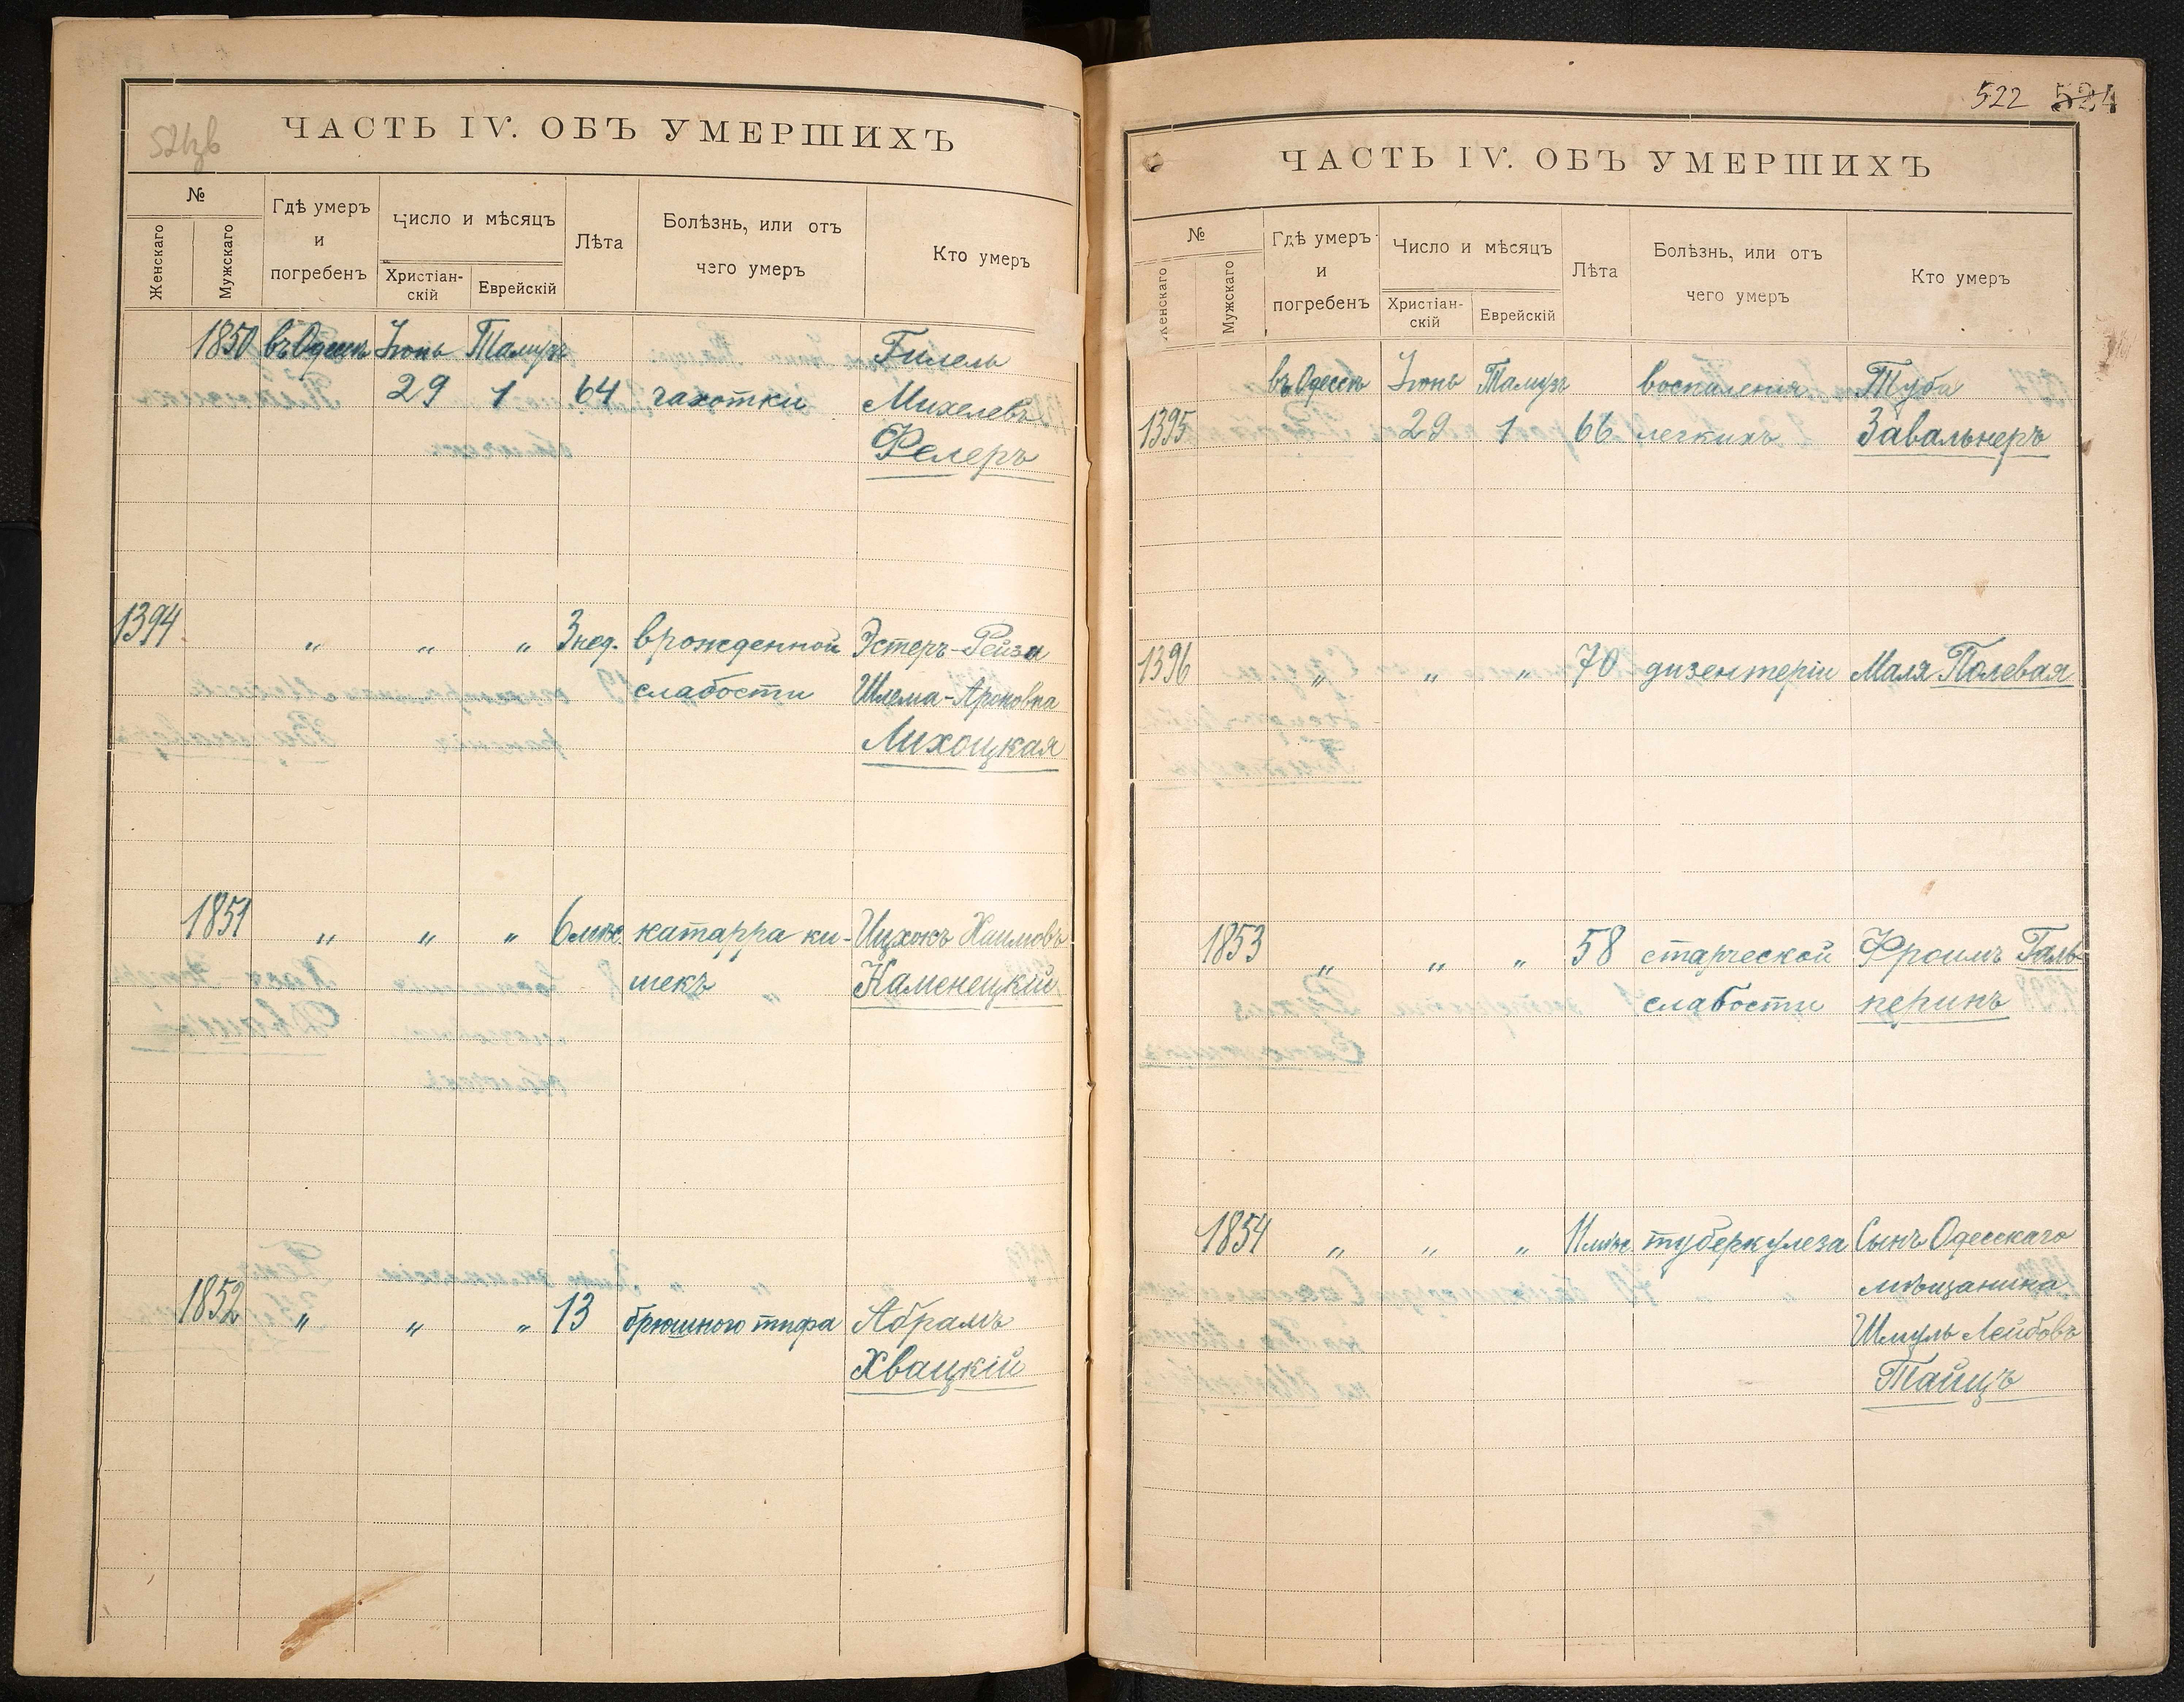 524зв
ЧАСТЬ IV. ОБЪ УМЕРШИХЪ
№
Женскаго
Мужскаго
Гдѣ умеръ
и
погребенъ
Число и мѣсяцъ
Христіан-
скій
Еврейскій
Лѣта
Болѣзнь, или отъ
чего умеръ
Кто умеръ
1850 въ Одессѣ Іюнь Тамузъ Гилель
29 1 64 чахотки Михелевъ
Фелеръ
1394 „ „ „ 3 нед. врожденной Эстеръ-Рейза
слабости Шлема-Ароновна
Лихоцкая
1851 „ „ „ 6 мѣс. катарра ки- Ицхокъ Хаимовъ
шекъ Каменецкій
1852 „ „ „ 13 брюшного тифа Абрамъ
Хвацкій
522 524
ЧАСТЬ IV. ОБЪ УМЕРШИХЪ
№
Женскаго
Мужскаго
Гдѣ умеръ
и
погребенъ
Число и мѣсяцъ
Христіан-
скій
Еврейскій
Лѣта
Болѣзнь, или отъ
чего умеръ
Кто умеръ
въ Одессѣ Іюнь Тамузъ воспаленія Туба
1395 29 1 66 легкихъ Завальнеръ
1396 „ „ „ 70 дизентеріи Маля Полевая
1853 „ „ „ 58 старческой Фроимъ Галь-
слабости перинъ
1854 „ „ „ 11 мѣс. туберкулеза Сынъ Одесскаго
мѣщанина
Шмуль Лейбовъ
Тайцъ